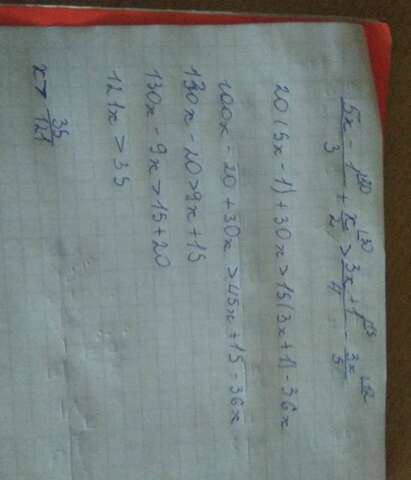 5x - 1/3 + x/2 > 3x + 1/4 - 3x/5
20(5x - 1) + 30x > 15(3x + 1) - 36x
100x - 20 + 30x > 45x + 15 - 36x
130x - 20 > 9x + 15
130x - 9x > 15 + 20
121x > 35
x > 35/121